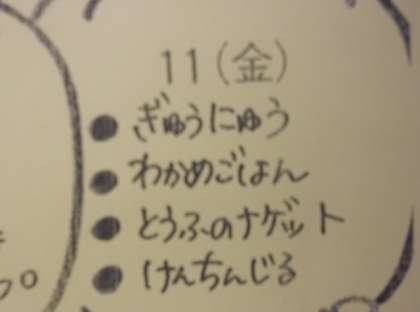 11(金)
● ぎゅうにゅう
● わかめごはん
● とうふのナゲット
● けんちんじる